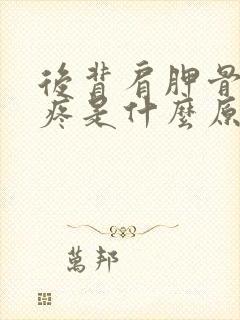 後背肩胛骨
疼是什麼原
萬邦